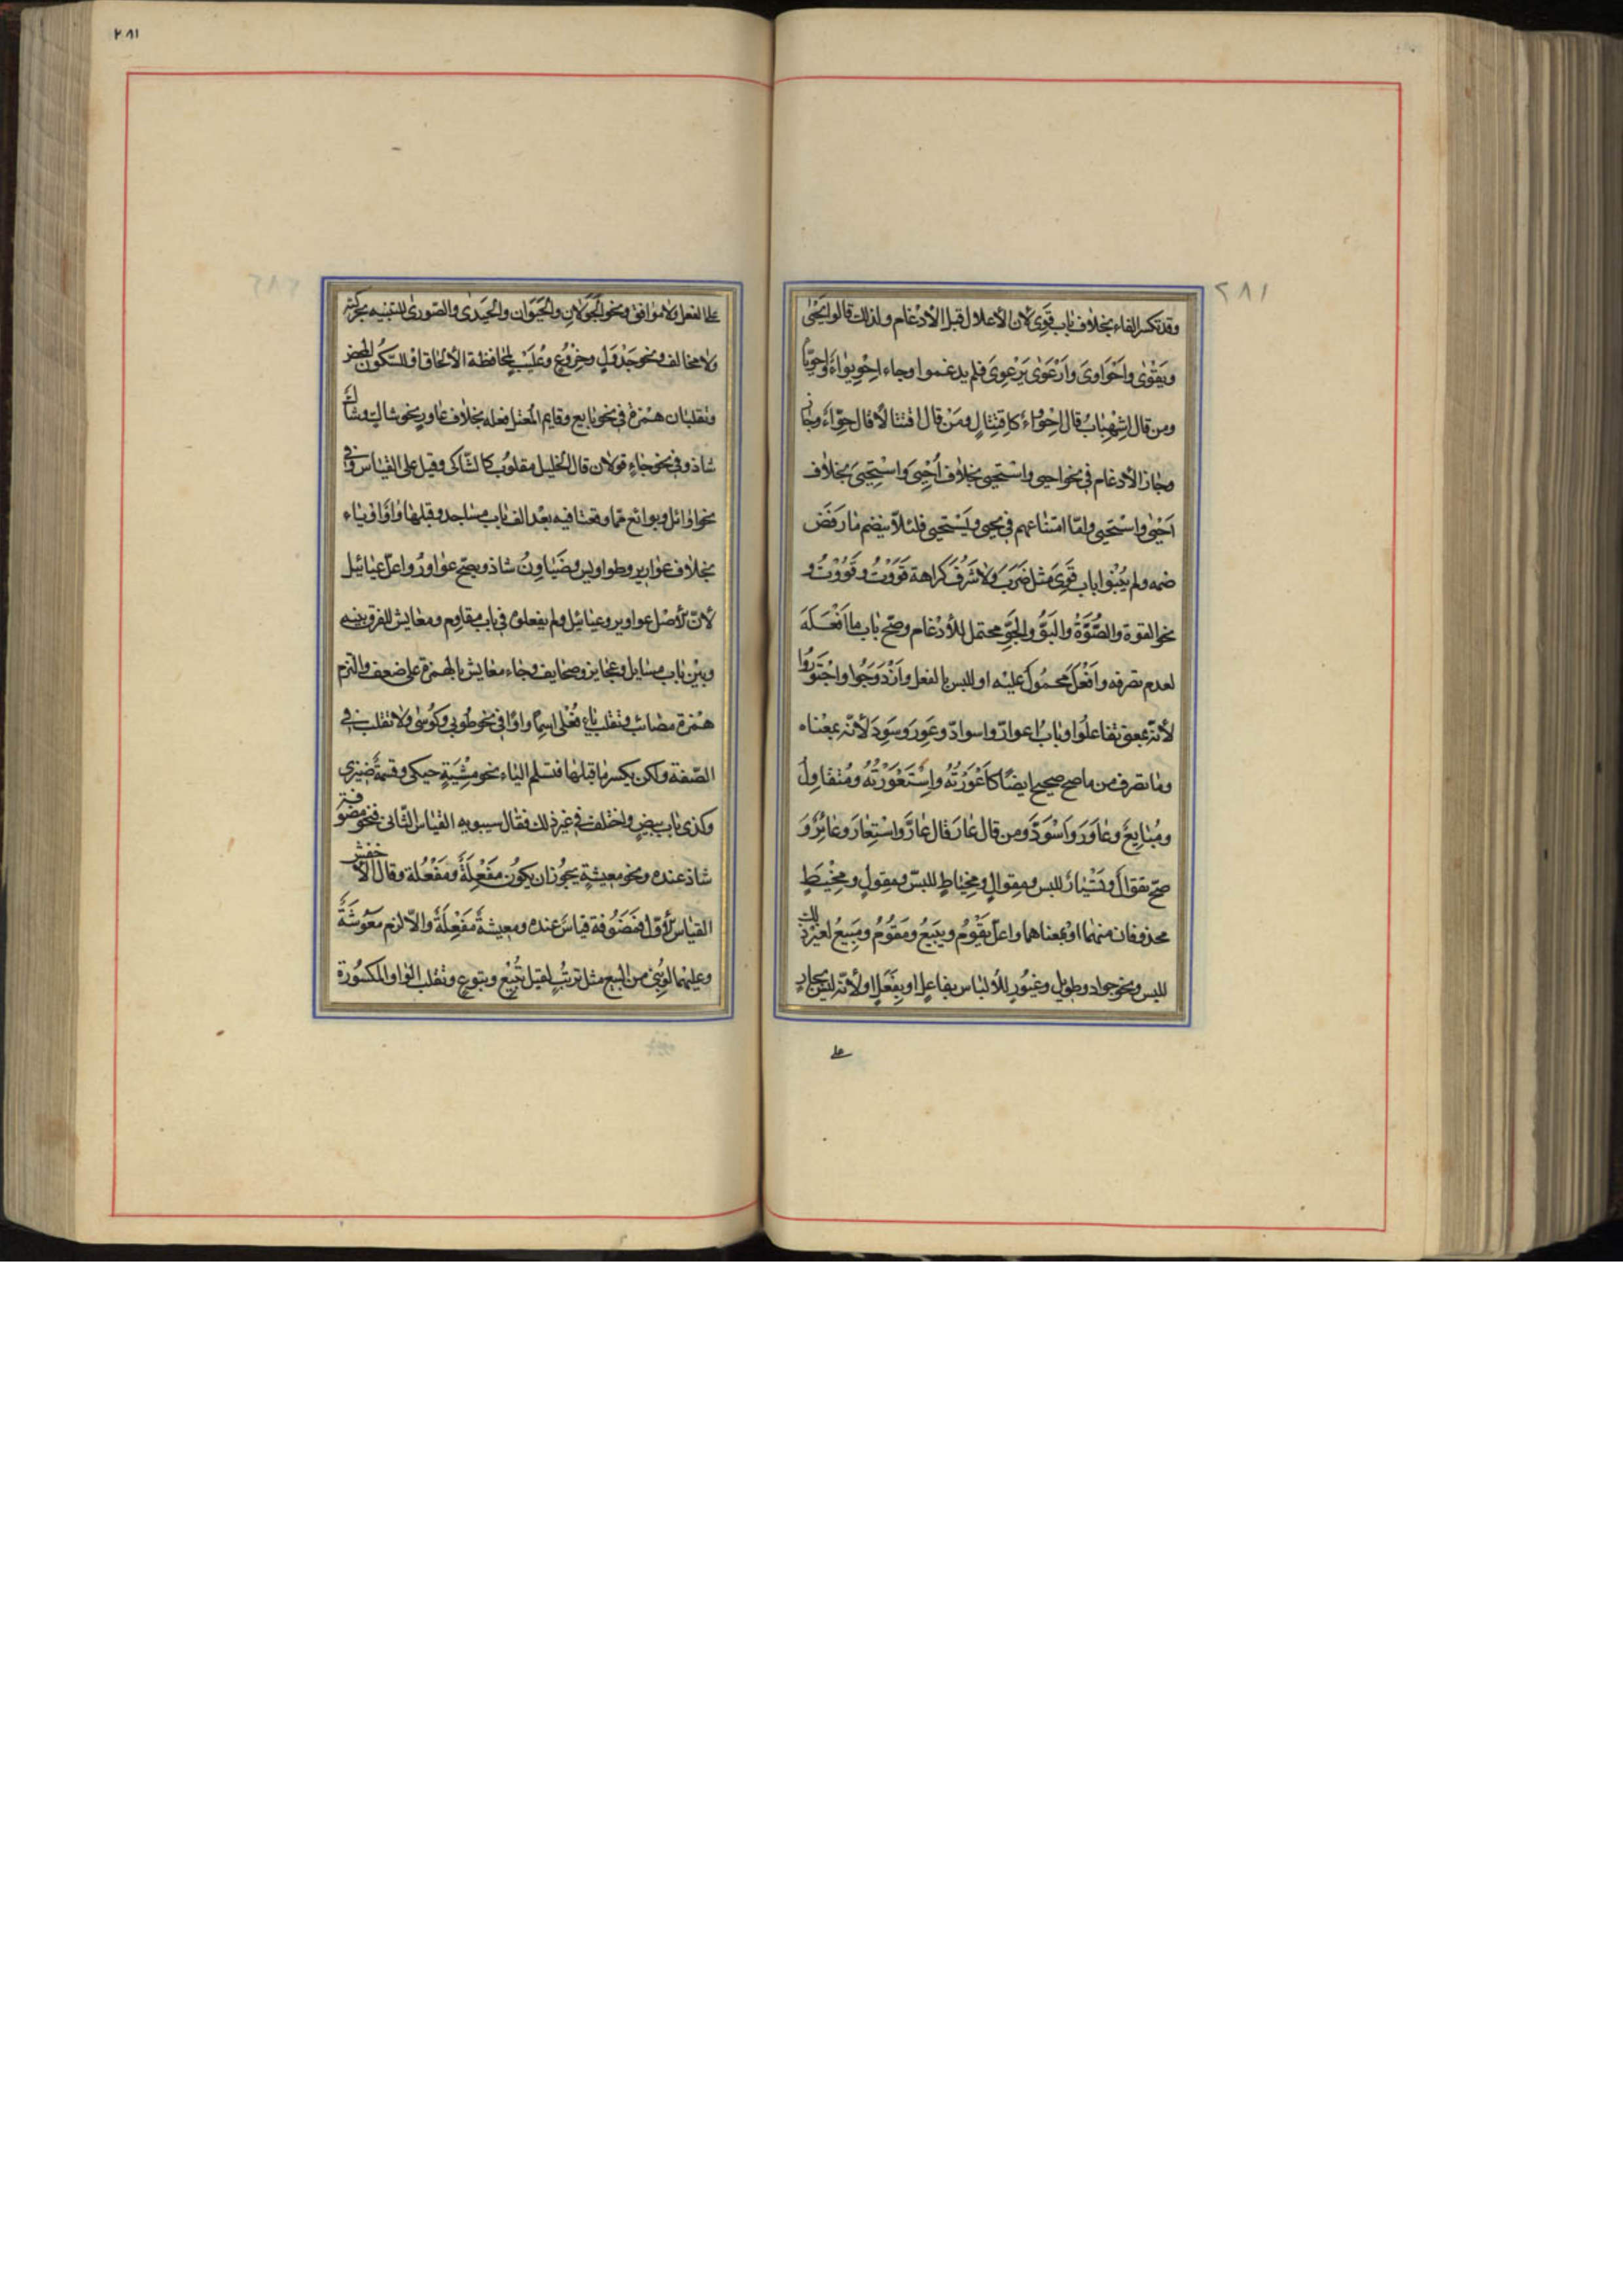 ٢٨١
وقد تكسر الفاء بخلاف باب قَوِىَ لان الأعلال قبل الأدغام ولذلك قالوا يَحْيٰى
ويَقْوٰى واحْوَاوىٰ وارْعَوٰى يَرْعوِىَ فلم يدغموا وجاء احْوِيوَاءٌ واحْوِيَّاءٌ
ومن قال اِشْهِبَابٌ قال احْوِوَاءٌ كاِقتِتالٍ ومَنْ قال قتالا قال حِوَّاءٌ وجاز
وجاز الأدغام فى نحو احيى واستحيى بخلاف اُحْيِىَ واسْتُحْيِىَ بخلاف
اَحْيٰى واسْتَحْيى وامّا امتناعهم فى يحيى ويَسْتحيى فلئلّا ينضم ما رَفَضَ
ضمه ولم يَبْنُوا باب قَوِىَ مثل ضَرَبَ ولا شَرُفَ كراهة قَوَوْتُ وقَوُوْتُ و
نحو القوة والصُّوَّةُ والبَوُّ والجَوِّ محتمل للأدْغام وصحّ باب ما اَفْعَلَهُ
لعدم تصرفه وافْعَلُ محمُولٌ عليْه او للبس بالفعل وازْدَوَجُوا واجْتَوَرُوا
لأنّه بمعنى تفاعلُوا وبابُ اعوارّ واسوادّ وعَوِرَ وسَوِدَ لأنّه بمعْناه
وما تصرف من ما صح صحيح ايضًا كاَعْوَرْتُهُ واسْتَعْوَرْتُهُ ومُتقاوِلٌ
ومُبَايِعٌ وعَاوَرَ واَسْوَدَّ ومن قال عَارَ قال عَارَّ واسْتِعَارَ وعَائِرٌ وَ
صحّ تقوالٌ وتَسْيارٌ للبس ومِقوالٍ ومِخْيَاطٍ للبسّ ومِقْوَلٍ ومِخْيطٍ
محذوفان منهما او بمعناهما واعلّ يَقُوْمُ ويَبيعُ ومَقُوْمٌ ومَبِيعٌ لغيْر ذلك
للبس ونحو جواد وطويل وغيُورٍ للألباس بفاعلٍ او بفَعَلَ او لأنّه ليس بجارٍ
على
على الفعل ولا موافق ونحو الجَوَلانِ والحَيَوان والحَيَدى والصّورى للتنبيه بحركته
ولا مخالف ونحو جَدْوَلٍ وخِرْوَعٍ وعُلْيَبٍ لمحافظة الألحاق او للسّكُون المحض
وتقلبان همْزة فى نحو بايع وقايم المعتل فعله بخلاف عاور ونحو شاكٍ وشاكٌ
شاذ وفى نحو جاءٍ قولان قال الخليل مقلوبٌ كالشّاكى وقيل على القياس وفى
نحو اوائل وبوائع ممّا وقعتا فيه بعْد الف باب مساجد وقبلها واوٌ او ياء
بخلاف عواوير وطواويس وضَيَاوِنُ شاذ ويصحّ عواوِرُ واعلّ عيائيل
لأنّ الأصل عواوير وعيائيل ولم يفعلوه فى باب مقاوِم ومعايش للفرق بينه
وبيْن باب رسايل وعجايز وصحايف وجاء معايش بالهمزة على ضعف والتزم
همْزة مصائب وتقلب ياء فُعْلى اسمًا واوًا فى نحو طُوبى وكُوسٰى ولا تقلب فى
الصّفة ولكن يكسر ما قبلها فتسلم الياء نحو مِشْيَةٌ حيكى وقسْمةٌ ضيزى
وكذى باب بيضٍ واختلف فى غير ذلك فقال سيبويه القياس الثّانى فنحو مضوفة
شاذ عنده ونحو معيشة يجوزان يكُون مَفْعِلَةً ومَفْعُلَة وقال الأخفش
القياس الأوّل فمَضُوفة قياسٌ عنده ومعيشة مَفْعِلَةٌ والّا لزم مَعُوشَةٌ
وعليهما لو بُنِى من البيع مثل ترتبٍ لقيل تُبِيْعٌ وتبوع وتقلب الواو المكسُورة